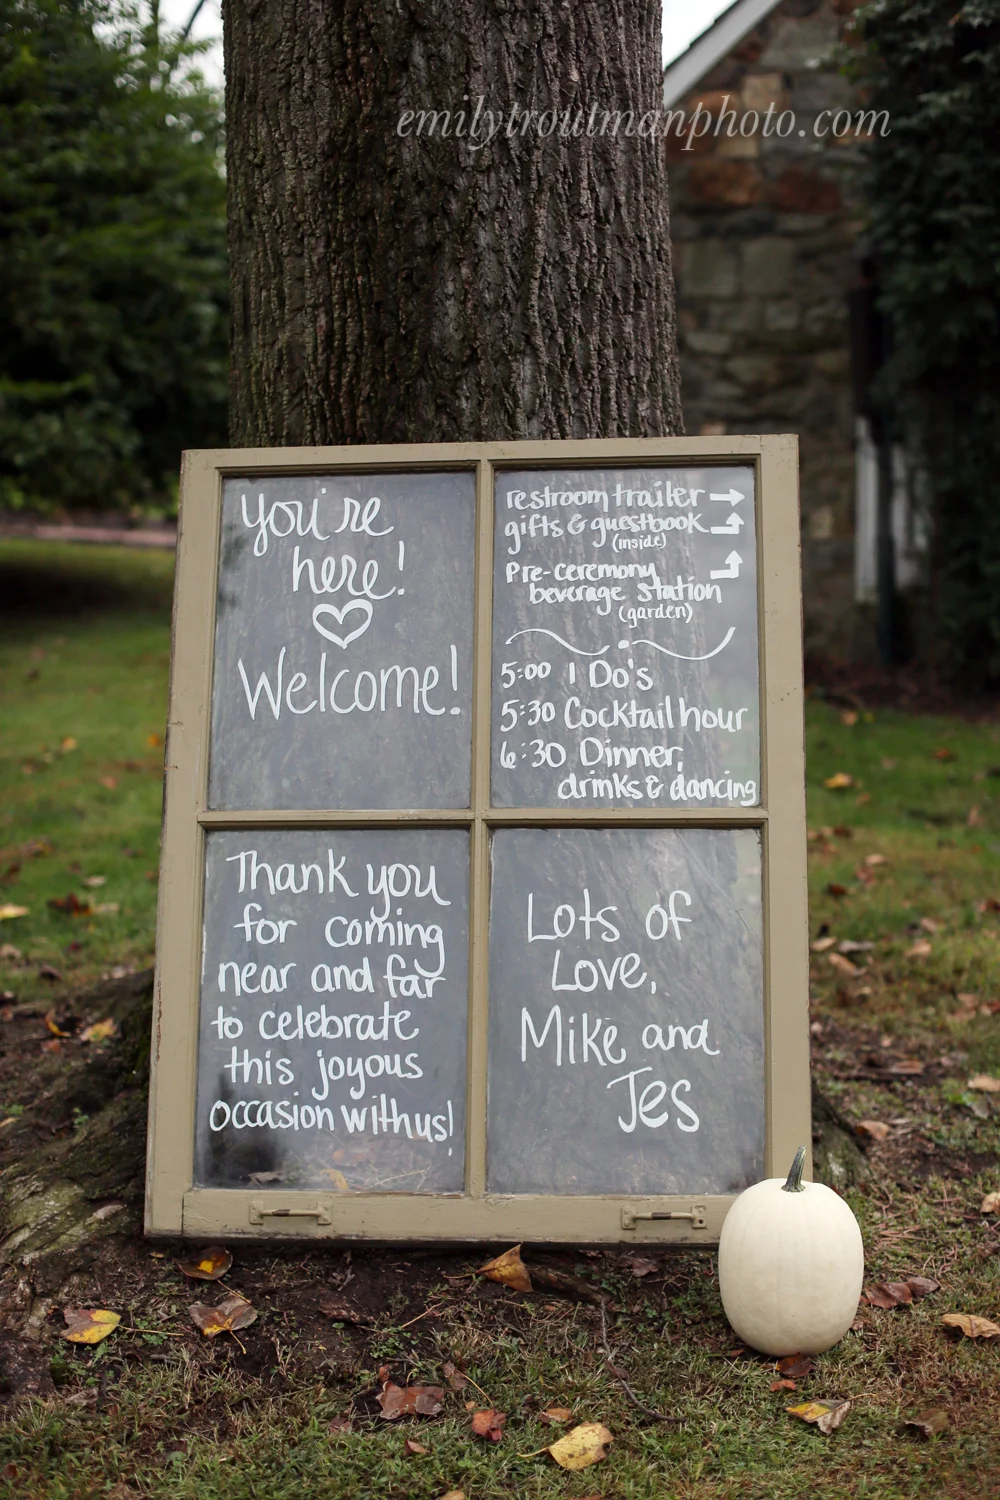 emilytroutmanphoto.com
you're
here!
Welcome!
restroom trailer →
gifts & guestbook
(inside)
Pre-ceremony
beverage station
(garden)
5:00 I Do's
5:30 Cocktail hour
6:30 Dinner,
drinks & dancing
Thank you
for coming
near and far
to celebrate
this joyous
occasion with us!
Lots of
Love,
Mike and
Jes